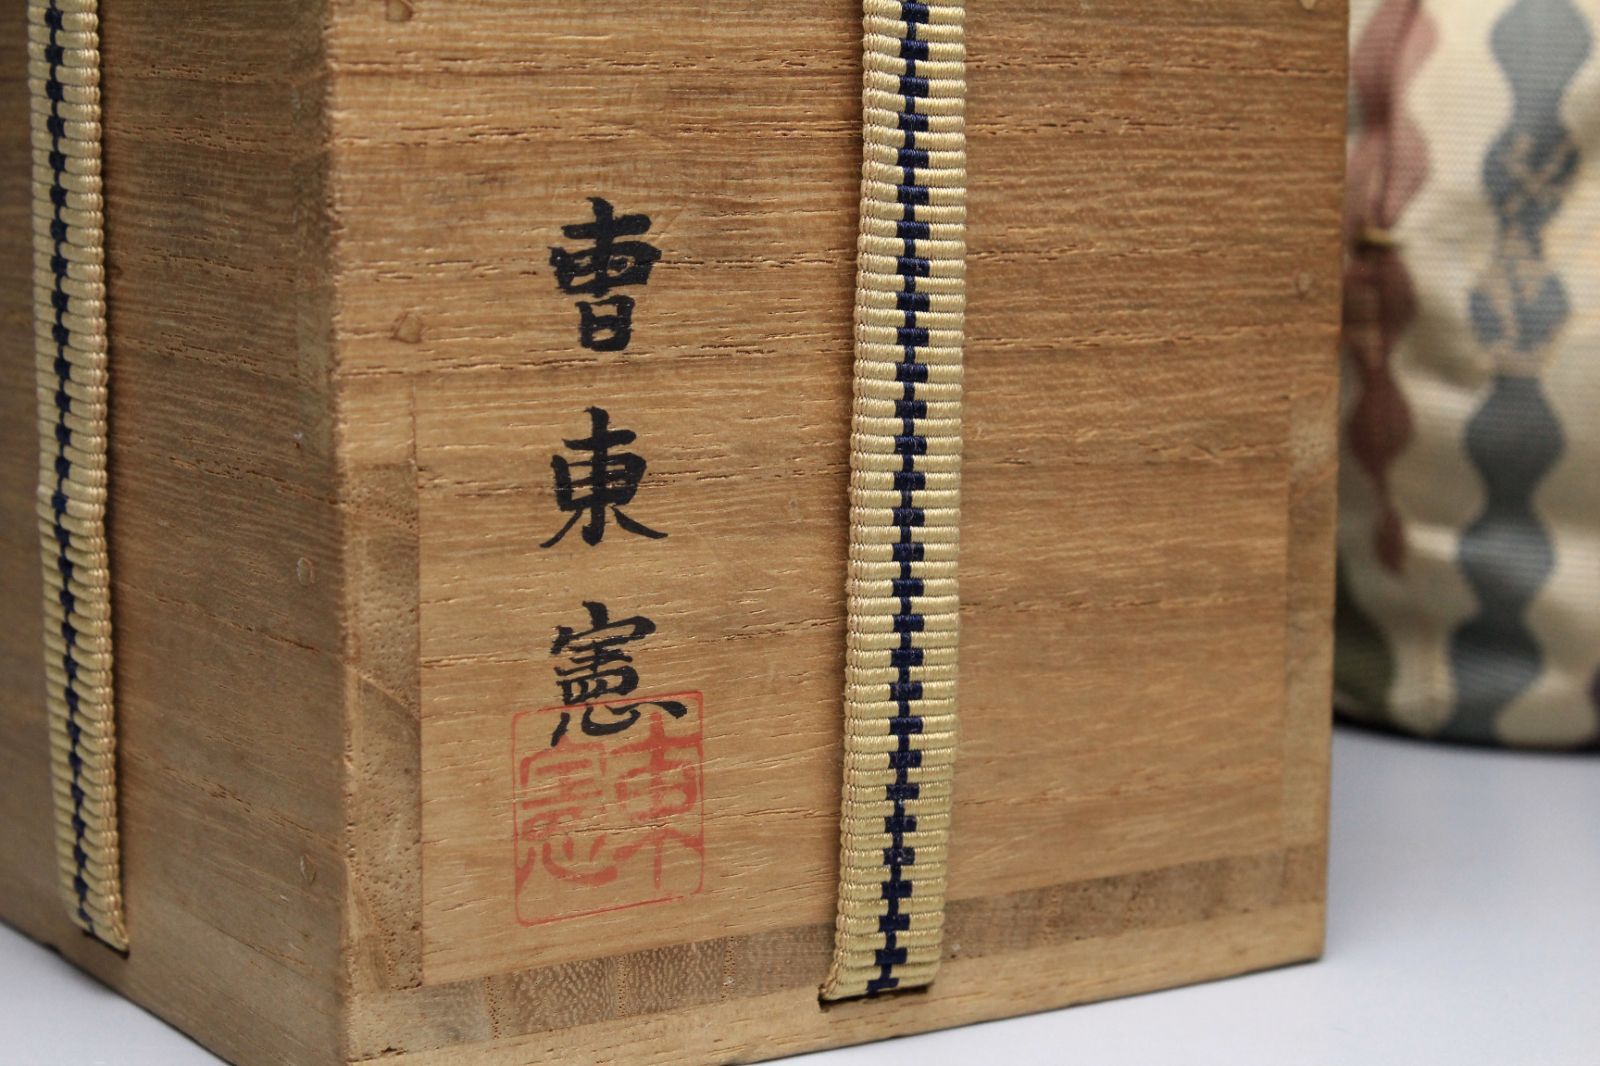 曺東憲
東憲